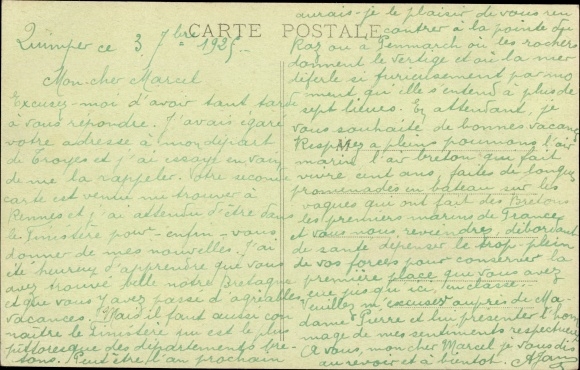 CARTE POSTALE
Quimper ce 3 7bre 1925
Mon cher Marcel
Excusez-moi d'avoir tant tardé
à vous répondre. J'avais égaré
votre adresse à mon départ
de Troyes et j'ai essayé en vain
de me la rappeler. Votre seconde
carte est venue me trouver à
Rennes et j'ai attendu d'être dans
le Finistère pour - enfin - vous
donner de mes nouvelles. J'ai
été heureux d'apprendre que vous
avez trouvé belle notre Bretagne
et que vous y avez passé d'agréables
vacances. Mais il faut aussi con
naître le Finistère qui est le plus
pittoresque des départements bre
tons. Peut-être l'an prochain
aurais-je le plaisir de vous ren
contrer à la pointe du
Raz ou à Penmarch où les rochers
donnent le vertige et où la mer
déferle si furieusement par mo
ment qu'elle s'entend à plus de
sept lieues. En attendant, je
vous souhaite de bonnes vacances
Respirez à pleins poumons l'air
marin l'air breton qui fait
vivre cent ans, faites de longues
promenades en bateau sur les
vagues qui ont fait des Bretons
les premiers marins de France
et vous nous reviendrez débordant
de santé dépenser le trop-plein
de vos forces pour conserver la
première place que vous avez
eue jusque ici en classe.
Veuillez m'excuser auprès de Ma-
dame Pierre et lui présenter l'hom
mage de mes sentiments respectueux
A vous, mon cher Marcel je vous dis
au revoir et à bientôt.